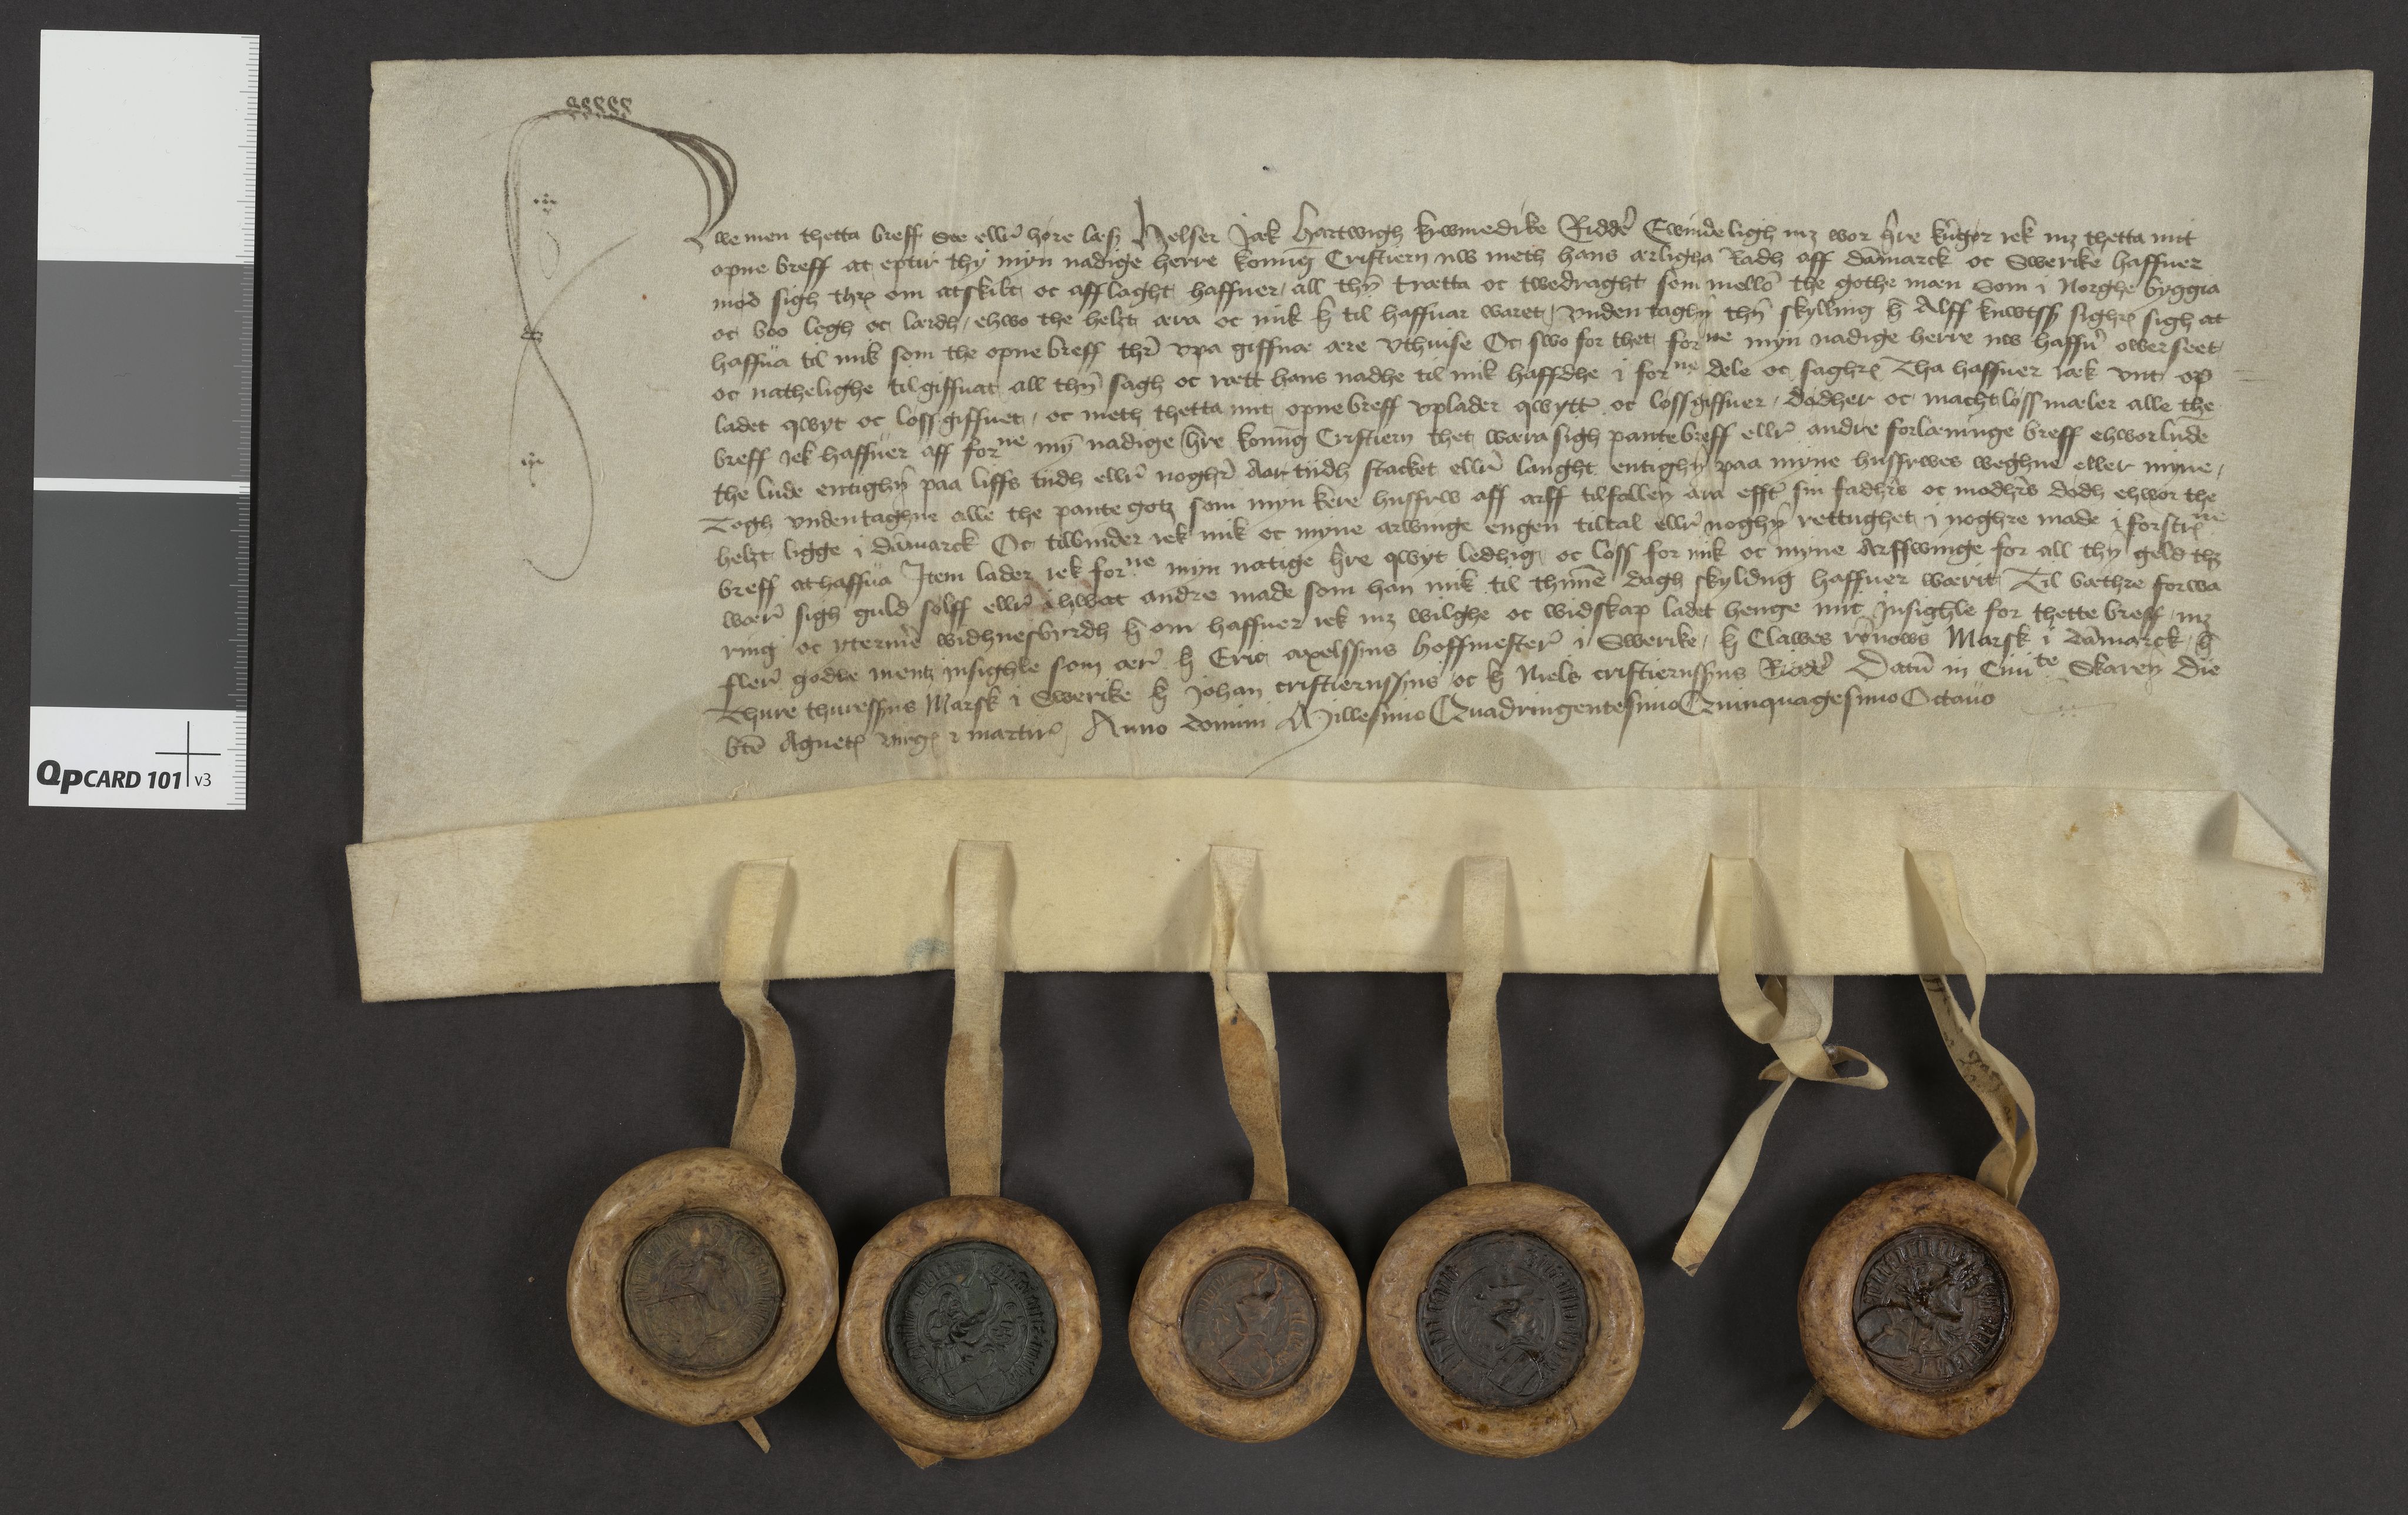 Qwemen thetta breff See ellr̄ høre læs Helser Jak Hartwigh krwmedike Ridder̄ Ewindeligh mz wor hr̄re kūgør iek mz thetta mit
opne breff at eptir thy myn nadige herre konūg Cristiern nw meth hans ærligha Radh aff dāmarck oc Swerike haffuer
mod sigh thr̄ om atskilt oc afflaght haffuer all thn̄ trætta oc twedraght som mellō the gothe mæn Som i Norghe byggia
oc boo legh oc lærdh ehwo the helzt æra oc mik h̄ til haffuar waret vnden taghn̄ thn̄ skylling h̄ Alff knwtss̄ sighr̄ sigh at
haffua til mik som the opne breff thr̄ vpa giffnæ ære vthuise Oc swo for thet forne myn nadige herre nw haffr̄ owerseet
oc nathelighe tilgiffuat all thn̄ sagh oc rætt hans nadhe til mik haffdhe i forne dele oc saghr̄ Tha haffuer iæk vnt op
ladet qwyt oc loss giffuet oc meth thetta mit opne breff vplader qwytt̄ oc loss giffuer dødher oc machtløss mæler alle the
breff iek haffuer aff forne mȳ nadige hr̄re konūg Cristiern thet wæra sigh pantebreff ellr̄ andre forlæninge breff ehworlude
the lude entighn̄ paa liffs tiidh ellr̄ noghr̄ Aar tiidh stacket ellr̄ langht entighn̄ paa myne husfrwes weghne eller myne
Togh vndentaghne alle the pantegotz som myn kere husfrw aff arff tilfallen ara efft̄ sin fadhrs̄ oc modhrs̄ dødh ehwor the
helzt ligge i dāmarck Oc tilbinder iek mik oc myne arwinge engen tiltal ellr̄ noghn̄ rettughet i noghre made i forscrne
breff at haffua Jtem lader iek forne myn natige hr̄re qwyt ledhig oc løss for mik oc myne Arffwinge for all thn̄ geld thz
wær̄ sigh guld sølff ellr̄ ihwat andre made som han mik til thn̄nē dagh skyldug haffuer wærit Til bæthre forwa
ring oc ytermer̄ widhnesbyrdh h̄ om haffuer iek mz wilghe oc widskap ladet henge mit Jnsighle for thette breff mz
fler̄ godhe mentz jnsighle som ær̄ h̄ Eric axelssyns hoffmester̄ i Swerike h̄ Clawes rønows Marsk i dāmarck h̄
Thure thuressyns Marsk i Swerike h̄ Johan cristiernssyns oc h̄ Niels cristiernssyns Ridder̄ Datū in Ciuite Skaren̄ die
bte̅ Agnet virgi 2 martir Anno domini Millesimo Quadringentesimo Quinquagesimo Octauo
QpCARD 101 v3